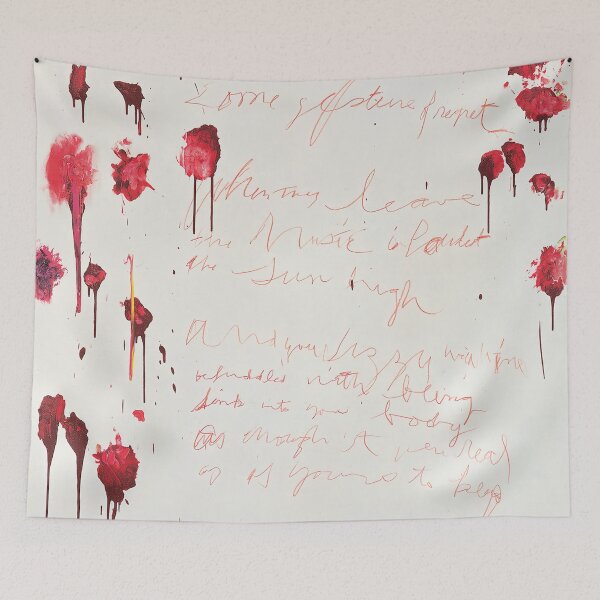 Some gesture of regret
When they leave
the Music is loudest
the Sun high
And you, dizzy with wine
befuddled with being
sink into your body
as though it were real
as if yours to keep